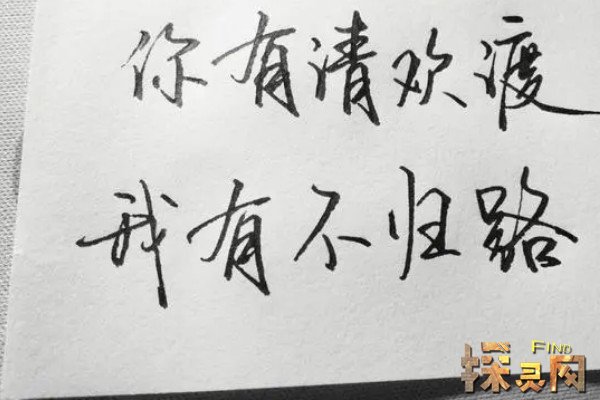 你有清欢渡
我有不归路
FIND
探灵网